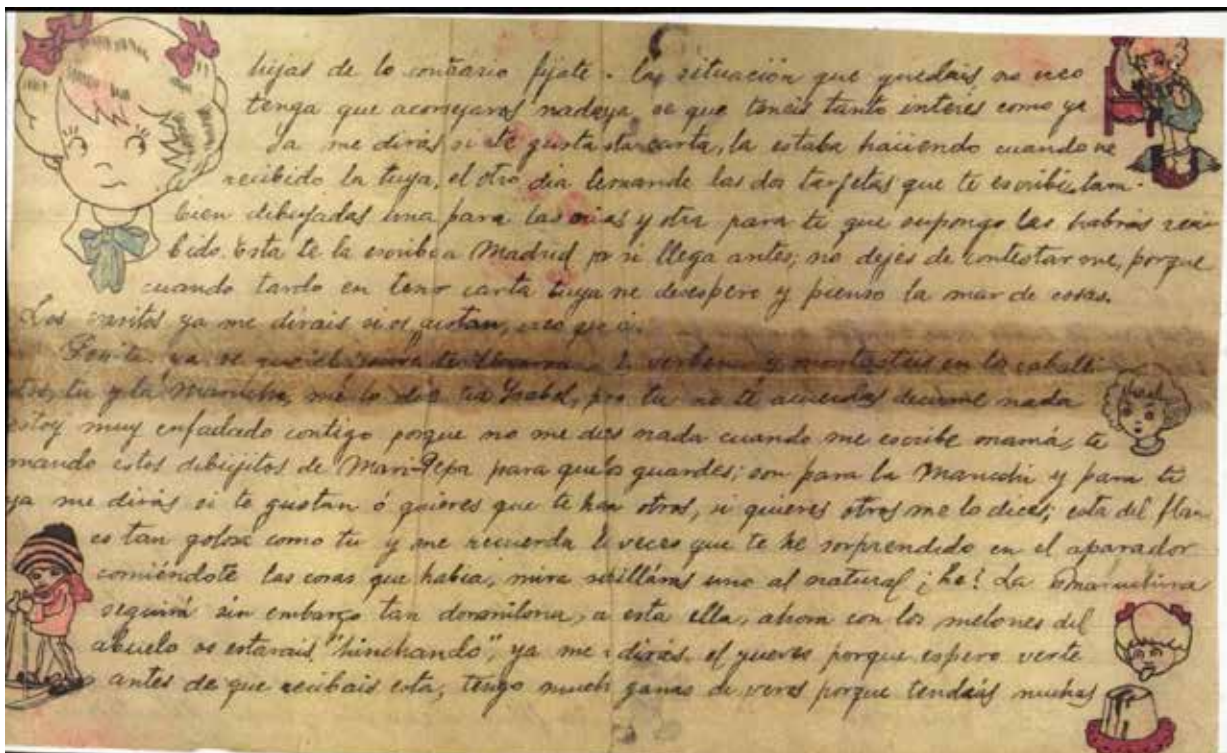 hijas de lo contrario fijate. La situación que quedais no creo
tenga que aconsejaros nada ya se que teneis tanto interes como yo
Ya me dirás si te gusta esta carta, la estaba haciendo cuando he
recibido la tuya, el otro dia te mande las dos tarjetas que te escribi, tam-
bien dibujadas una para las niñas y otra para ti que supongo las habrás reci-
bido. Esta te la escribo a Madrid por si llega antes; no dejes de contestarme, porque
cuando tardo en tener carta tuya me desespero y pienso la mar de cosas.
Los versitos ya me dirais si os gustan, creo que si.
ya se que verbena y montasteis en los caballi-
tos, tu y la Maruchi, me lo dice tia Isabel, pero tu no te acuerdas decirme nada
estoy muy enfadado contigo porque no me dices nada cuando me escribe mamá, te
mando estos dibujitos de Mari-Pepa para que los guardes; son para la Maruchi y para ti
ya me dirás si te gustan ó quieres que te haga otros, si quieres otros me lo dices; esta del flan
es tan golosa como tu y me recuerda la veces que te he sorprendido en el aparador
comiéndote las cosas que habia, mira uno al natural ¡he! La
seguirá sin embargo tan dormilona, a esta ella, ahora con los melones del
abuelo os estarais "hinchando", ya me dirás el jueves porque espero verte
antes de que recibais esta, tengo much ganas de veros porque tendrás muchas